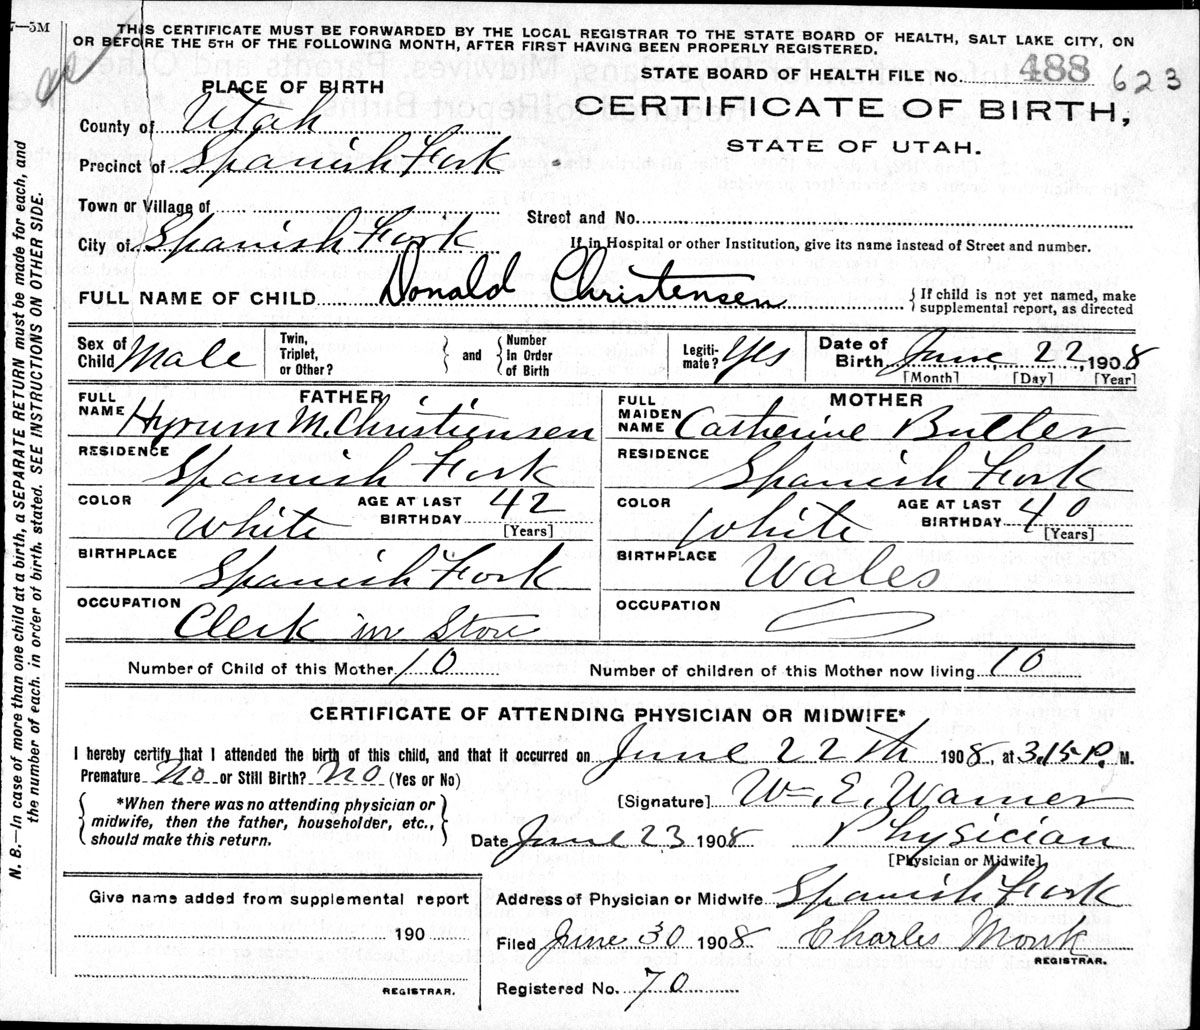 7—5M
THIS CERTIFICATE MUST BE FORWARDED BY THE LOCAL REGISTRAR TO THE STATE BOARD OF HEALTH, SALT LAKE CITY, ON
OR BEFORE THE 5TH OF THE FOLLOWING MONTH, AFTER FIRST HAVING BEEN PROPERLY REGISTERED.
STATE BOARD OF HEALTH FILE No. 488 623
PLACE OF BIRTH
CERTIFICATE OF BIRTH,
STATE OF UTAH.
County of Utah
Precinct of Spanish Fork
Town or Village of
Street and No.
City of Spanish Fork
If in Hospital or other Institution, give its name instead of Street and number.
FULL NAME OF CHILD Donald Christensen {If child is not yet named, make
supplemental report, as directed
Sex of Child Male
Twin, Triplet, or Other? } and { Number In Order of Birth
Legitimate? Yes
Date of Birth June, 22, 1908
[Month] [Day] [Year]
FATHER
FULL NAME Hyrum M. Christiensen
RESIDENCE Spanish Fork
COLOR White AGE AT LAST BIRTHDAY 42 [Years]
BIRTHPLACE Spanish Fork
OCCUPATION Clerk in Store
MOTHER
FULL MAIDEN NAME Catherine Butler
RESIDENCE Spanish Fork
COLOR White AGE AT LAST BIRTHDAY 40 [Years]
BIRTHPLACE Wales
OCCUPATION
Number of Child of this Mother 10 Number of children of this Mother now living 10
CERTIFICATE OF ATTENDING PHYSICIAN OR MIDWIFE*
I hereby certify that I attended the birth of this child, and that it occurred on June 22th 1908, at 3.15 P. M.
Premature No or Still Birth? No (Yes or No)
{*When there was no attending physician or
midwife, then the father, householder, etc.,
should make this return.}
[Signature] Wm. E. Warner
Date June 23 1908 Physician
[Physician or Midwife]
Give name added from supplemental report
190
REGISTRAR.
Address of Physician or Midwife Spanish Fork
Filed June 30 1908 Charles Monk
REGISTRAR.
Registered No. 70
N. B.—In case of more than one child at a birth, a SEPARATE RETURN must be made for each, and
the number of each, in order of birth, stated. SEE INSTRUCTIONS ON OTHER SIDE.